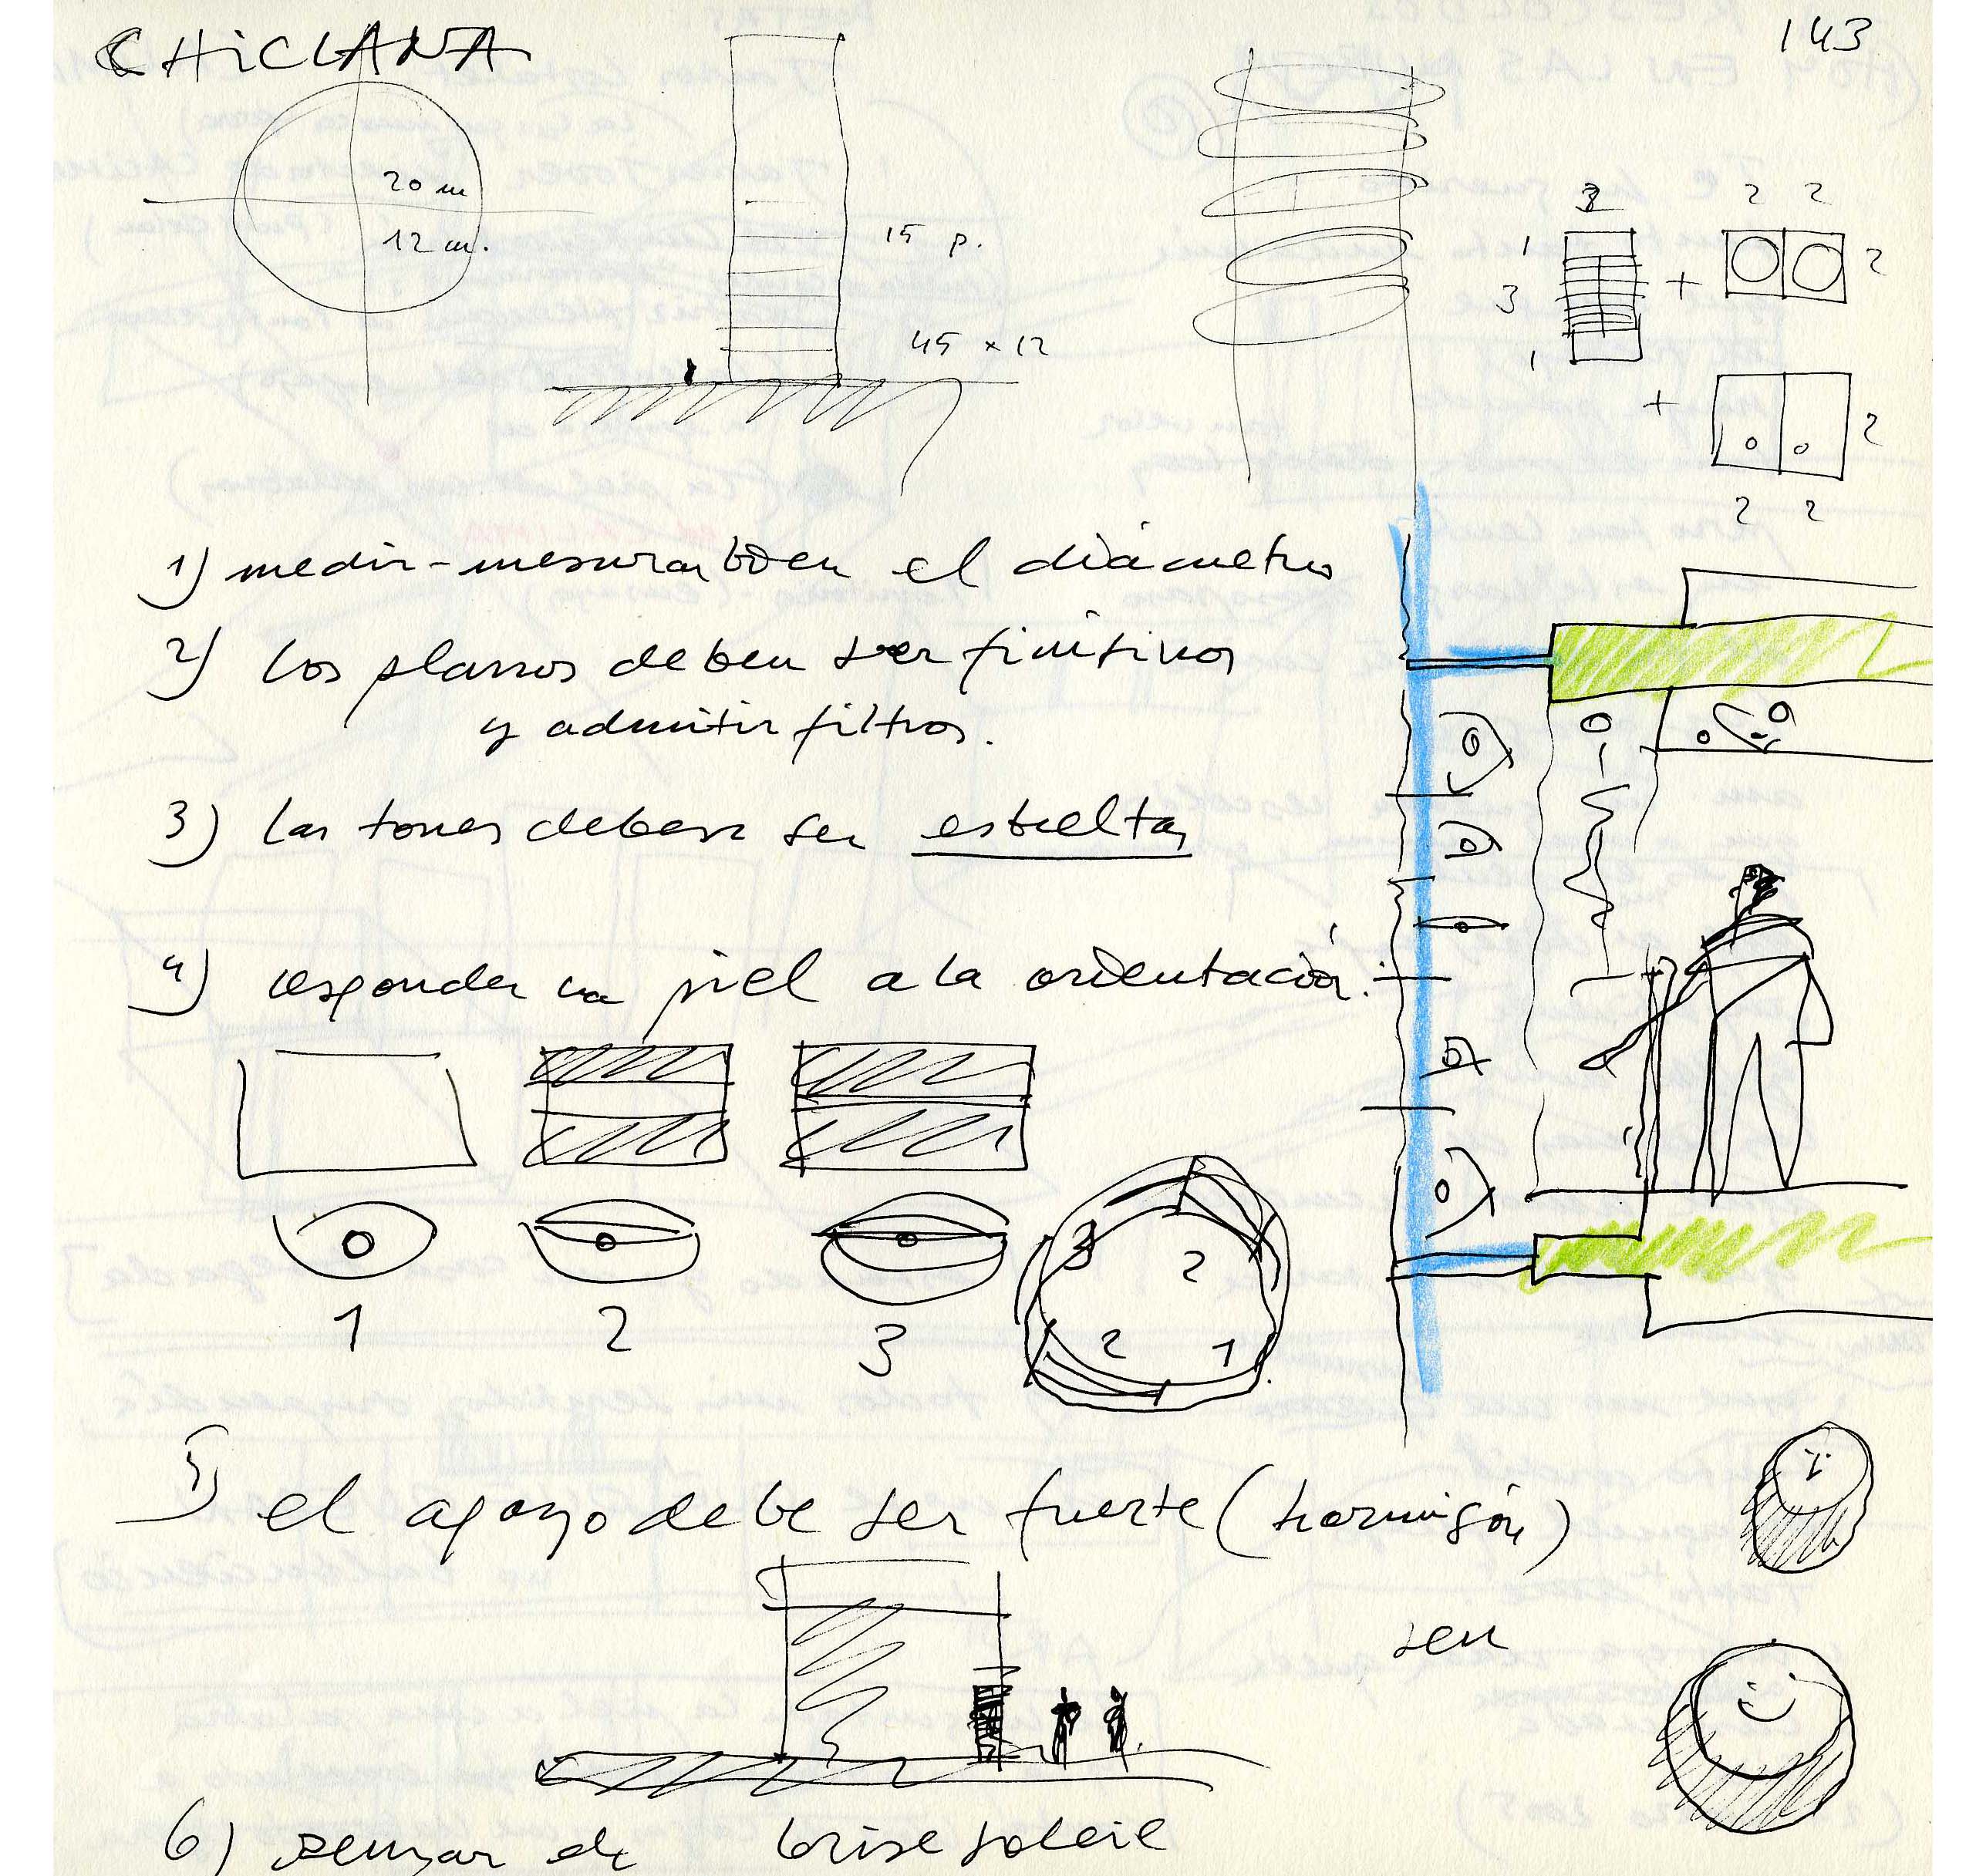 CHiCLANA
143
20 m
12 m.
15 p.
45 x 12
2 2
1
3
1
+
2
+
2
2 2
1) medir-mesurar bien el diámetro
2) los planos deben ser finitivos
y admitir filtros.
3) las torres deben ser esbeltas
4) responder la piel a la orientación.
1
2
3
3
2
2
1
5) el apoyo debe ser fuerte (hormigón)
6) pensar de brise soleil